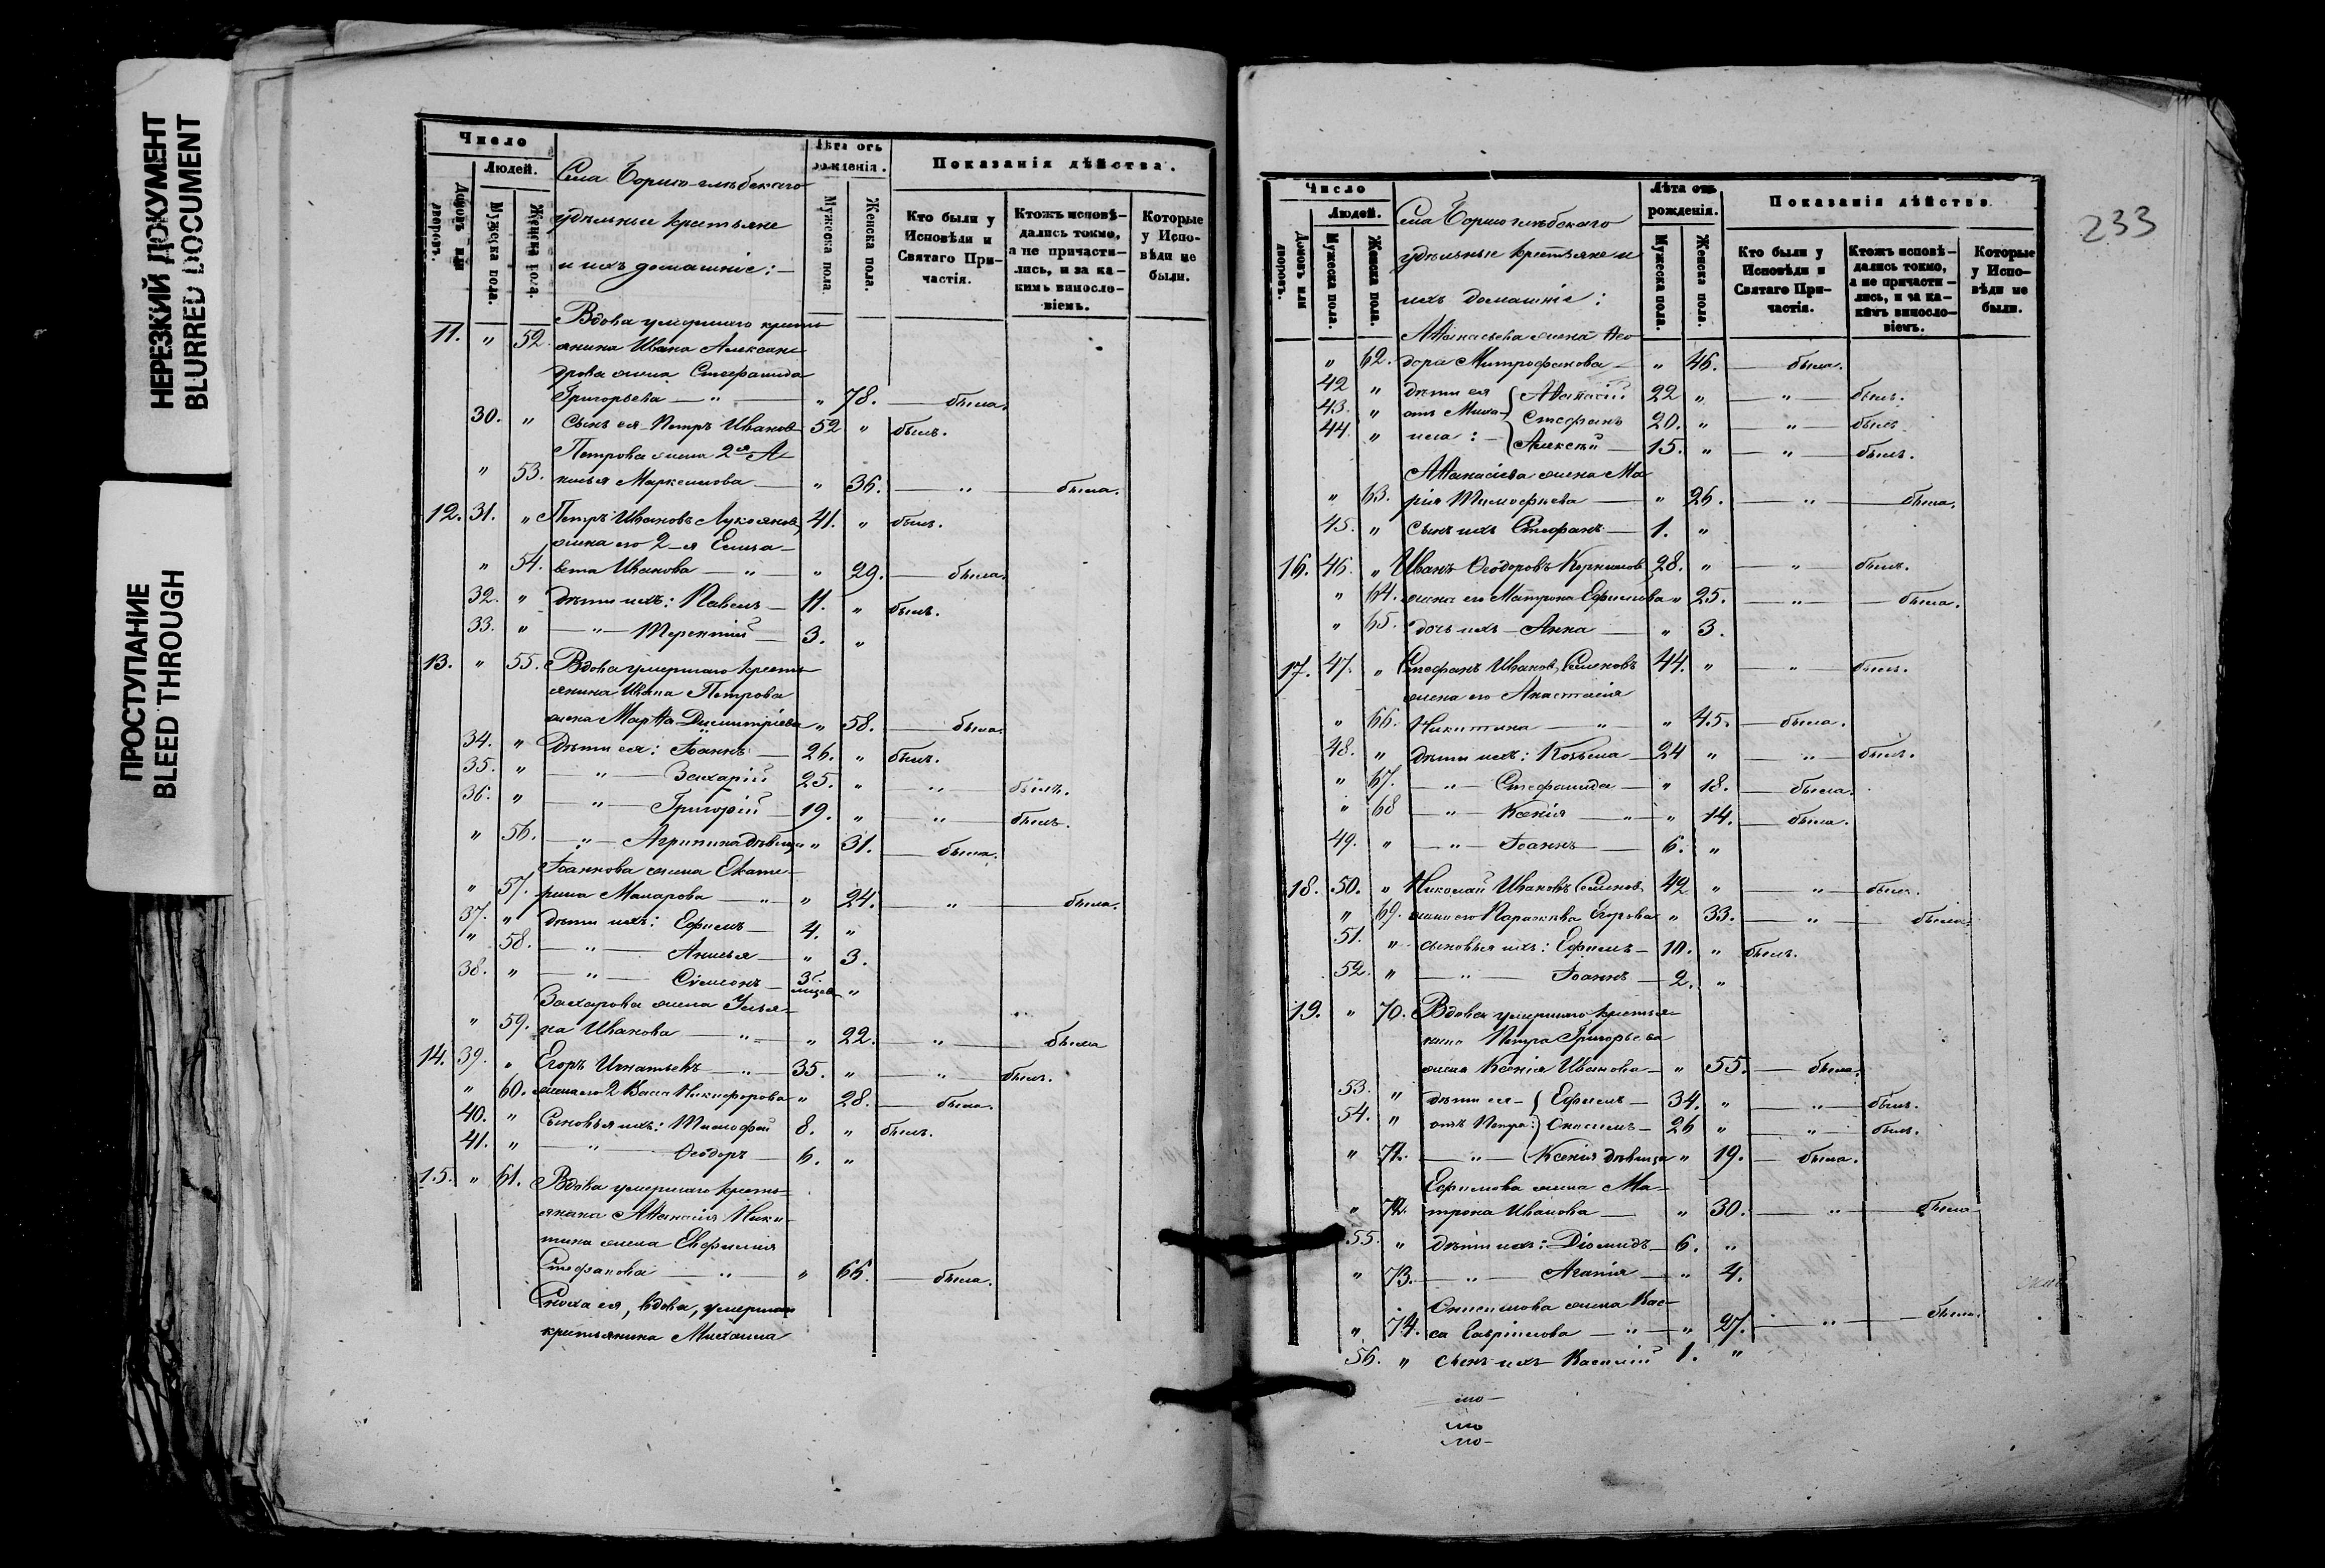 НЕРЕЗКИЙ ДОКУМЕНТ
BLURRED DOCUMENT
ПРОСТУПАНИЕ
BLEED THROUGH
Число
Людей.
Домовъ или дворовъ.
Мужеска пола.
Женска пола.
Села Борисо-глѣбскаго
удѣльные крестьяне
и ихъ домашніе:—
Лѣта отъ рожденія.
Мужеска пола.
Женска пола.
Показанія дѣйства.
Кто были у Исповѣди и Святаго Причастія.
Ктожъ исповѣдались токмо, а не причастились, и за какимъ винословіемъ.
Которые у Исповѣди не были.
Вдова умершаго кресть
11. " 52. янина Ивана Алексан
дрова жена Стефанида
Григорьева — " — " 78. — была.
30. " Сынъ ея Петръ Ивановъ 52 " былъ.
Петрова жена 2я А-
" 53. нисья Маркелова — " 36. — " — была.
12. 31. " Петръ Ивановъ Лукояновъ 41. " былъ.
жена его 2-я Елиза-
" 54. вета Иванова — " — " 29. — была.
32. " дѣти ихъ: Павелъ — 11. " былъ.
33. " — " — Терентій — 3. "
13. " 55. Вдова умершаго кресть
янина Ивана Петрова
жена Марѳа Димитріева " 58. — была.
34. " Дѣти ея: Іоаннъ — 26. " былъ.
35. " — " — Захарій 25. " — " — былъ.
36. " — " — Григорій — 19. " — " — былъ.
" 56. — " — Агрипина дѣвица " 31. — была.
Іоаннова жена Екате-
" 57. рина Макарова — " — " 24. — " — была.
37. " дѣти ихъ: Ефимъ — 4. "
" 58. — " — Анисья — " 3.
38. " — " — Сѵмеонъ — 3 мѣсяц. "
Захарова жена Улья-
" 59. на Иванова — " — " 22. — " — была
14. 39. " Егоръ Игнатьевъ — " — 35. " — " — былъ.
" 60. жена его 2 Васса Никифорова " 28. — была.
40. " Сыновья ихъ: Тимофей 8. " былъ.
41. " — " — Ѳеодоръ — 6. "
15. " 61. Вдова умершаго кресть-
янина Аѳанасія Ники-
тина жена Евфимія
Стефанова — " — " 66. — была.
Сноха ея, вдова, умершаго
крестьянина Михаила
233
Число
Людей.
Домовъ или дворовъ.
Мужеска пола.
Женска пола.
Села Борисоглѣбскаго
удѣльные крестьяне и
ихъ домашніе:
Лѣта отъ рожденія.
Мужеска пола.
Женска пола.
Показанія дѣйства.
Кто были у Исповѣди и Святаго Причастія.
Ктожъ исповѣдались токмо, а не причастились, и за какимъ винословіемъ.
Которые у Исповѣди не были.
Аѳанасьева жена Ѳео
" 62. дора Митрофанова — " 46. — была.
42 " дѣти ея { Аѳанасій 22 " — " — былъ.
43. " отъ Миха- { Стефанъ 20. " — " — былъ.
44. " ила: — { Алексѣй — 15. " — " — былъ.
Аѳанасіева жена Ма
" 63. рія Тимофеева — " 26. — " — была.
45. " сынъ ихъ Стефанъ — 1. "
16. 46. " Иванъ Ѳеодоровъ 28. " — " — былъ.
" 64. жена его Матрона Ефимова " 25. — " — была.
" 65. дочь ихъ — Анна — " 3.
17. 47. " Стефанъ Ивановъ Семеновъ 44. " — " — былъ.
жена его Анастасія
" 66. Никитина — " — " 45. — была.
48. " дѣти ихъ: Козьма — 24 " — " — былъ.
" 67. — " — Стефанида — " 18. — была.
" 68 — " — Ксенія — " — " 14. — была.
49. " — " — Іоаннъ — 6. "
18. 50. " Николай Ивановъ Семеновъ 42 " — " — былъ.
" 69. жена его Параскева Егорова " 33. — " — была.
51. " сыновья ихъ: Ефимъ — 10. " былъ.
52. " — " — Іоаннъ — 2. "
19. " 70. Вдова умершаго крестья-
нина Петра Григорьева
жена Ксенія Иванова — " 55. — была.
53. " дѣти ея — { Ефимъ — 34. " — " — былъ.
54. " отъ Петра: { Онисимъ — 26 " — " — былъ.
" 71. — " — { Ксенія дѣвица " 19. — была.
Ефимова жена Ма-
" 72. трона Иванова — " 30. — " — была
55. " дѣти ихъ: Діомидъ — 6. "
" 73. — " — Агапія — " 4.
Онисимова жена Вас-
" 74. са Гавріилова — " — " 27. — " — была.
56. " сынъ ихъ Василій 1. "